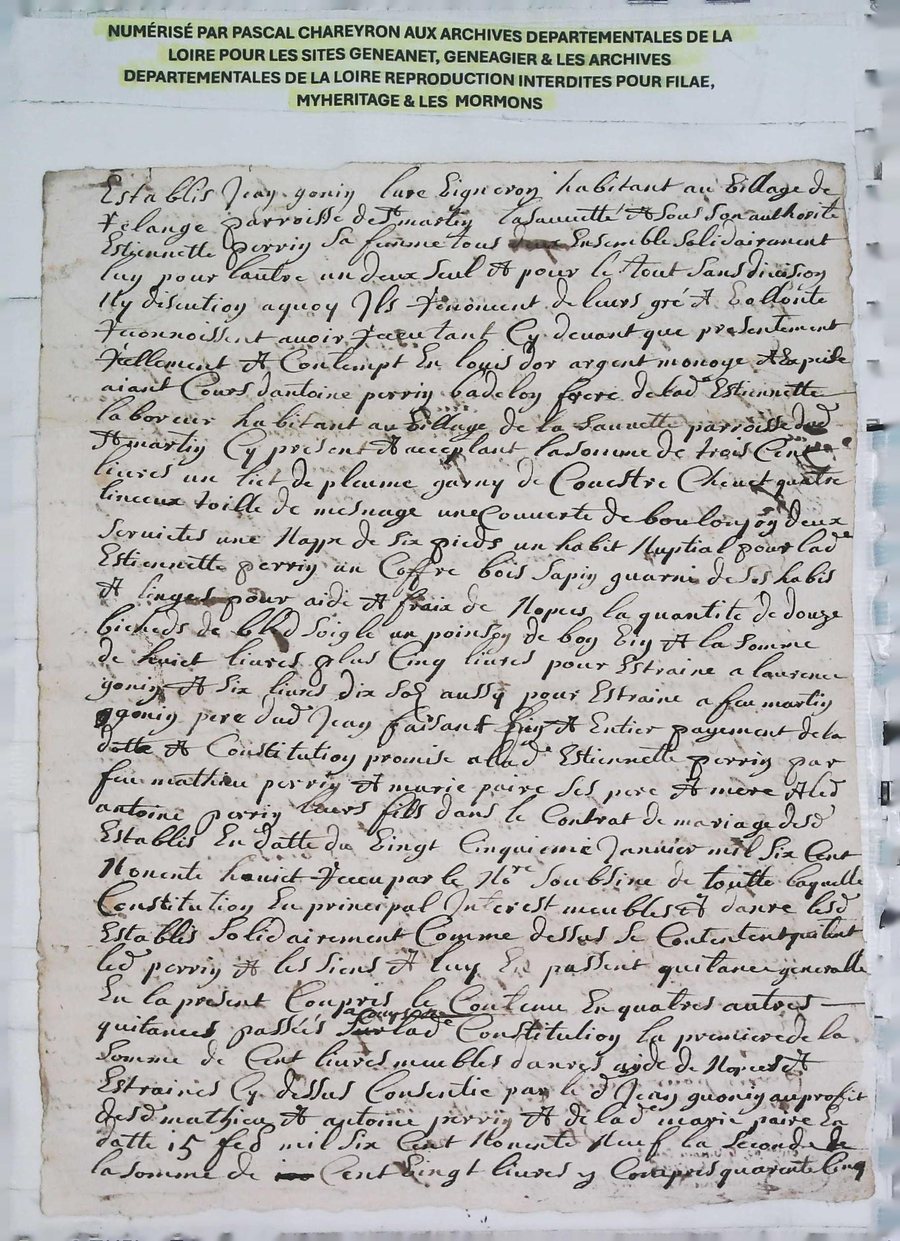 NUMÉRISÉ PAR PASCAL CHAREYRON AUX ARCHIVES DEPARTEMENTALES DE LA
LOIRE POUR LES SITES GENEANET, GENEAGIER & LES ARCHIVES
DEPARTEMENTALES DE LA LOIRE REPRODUCTION INTERDITES POUR FILAE,
MYHERITAGE & LES MORMONS
Establis Jean gonin lure Vigneron habitant au Village de
Velange parroisse de St martin lasauuetté & sous son authorité
Estiennette perrin sa femme tous Ensemble solidairement
luy pour lautre un deux seul & pour le tout sans division
Ny discution aquoy Ils renoncent de leurs gré & Vollonté
reconnoissent auoir receu tant Cy deuant que presentement
reellement & Contempt En louis dor argent monoye &
aiant Cours dantoine perrin badelon frere de lad.e Estiennette
laboreur habitant au Village de la Sauuette parroisse dud
St martin Cy present & acceptant la somme de trois Cent
liures un liet de plume garny de Couestre Cheuet quatre
linceux toille de mesnage une Couuerte de deux
seruietes une Nappe de six pieds un habit Nuptial pour lad.e
Estiennette perrin un Coffre bois sapin guarni de ses habis
& linges pour aide & fraix de Nopces la quantité de douze
bicheds de bled soigle un poinson de bon Vin & la somme
de huict liures plus Cinq liures pour Estraine a laurence
gonin & six liures dix sol aussy pour Estraine a feu martin
gonin pere dud Jean faisant fin & Entier payement de la
dotte & Constitution promise a lad.e Estiennette perrin par
feu mathieu perrin & marie paire ses pere & mere & led
antoine perrin leurs fills dans le Contrat de mariage desd
Establis En datte du Vingt Cinquieme Januier mil six Cent
Nonente huict receu par le No.re soubsine de toutte laquelle
Constitution En principal Interest meubles & danre lesd
Establis solidairement Comme dessus se Contentent quitent
led perrin & les siens & luy En passent quitance generalle
En la present Conpris le Contenu En quatres autres
quitances passés a Compte sur lad.e Constitution la premiere de la
somme de Cent liures meubles danres ayde de Nopces &
Estraines Cy dessus Consentie par le d Jean guonin au profit
desd mathieu & antoine perrin & de lad.e marie paire En
datte 15 feb mil six Cent Nonente Neuf la seconde de
la somme de Cent Vingt liures y Compris quarente Cinq